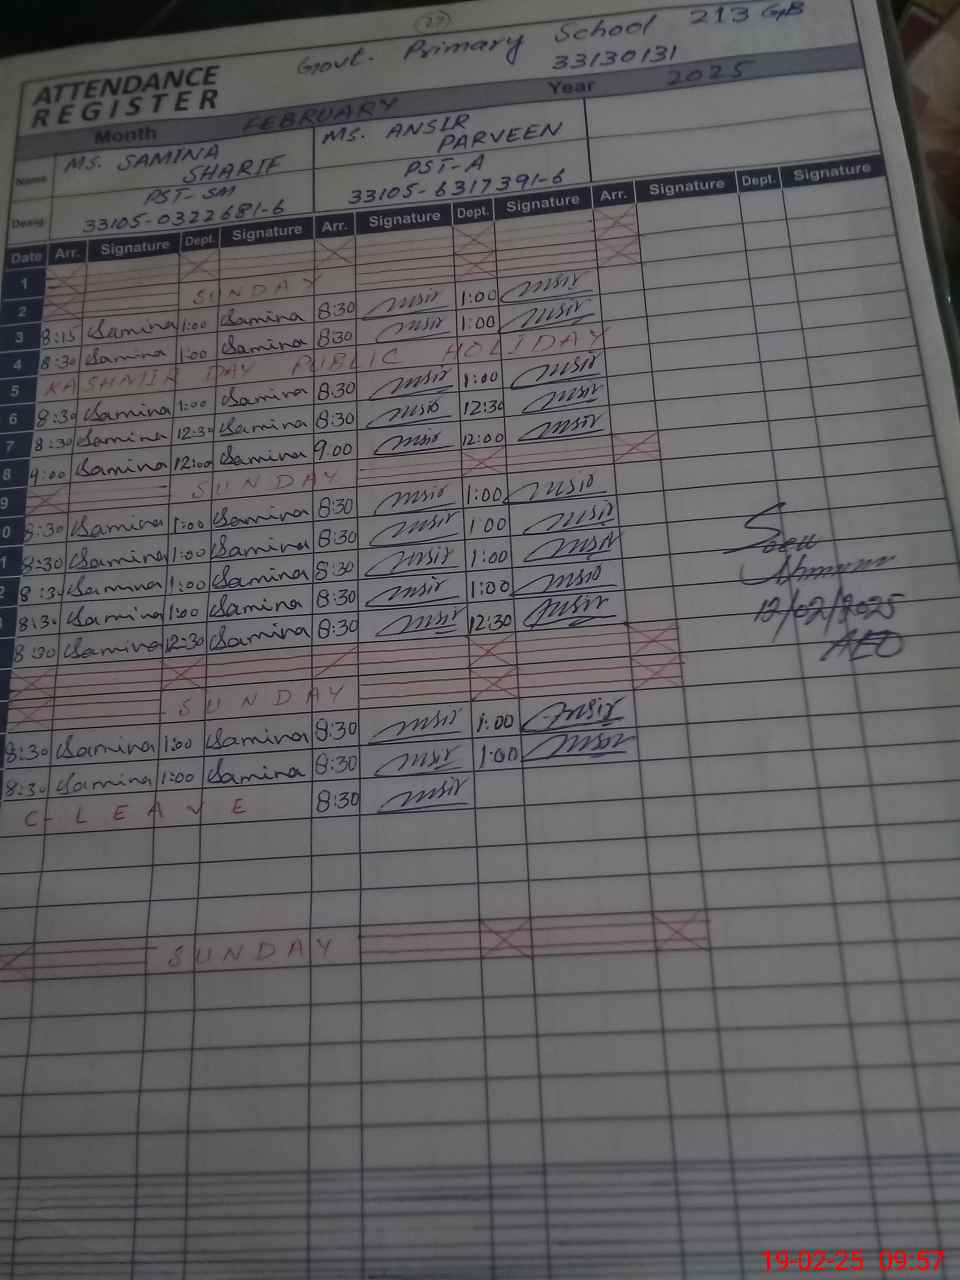 27
Govt. Primary School 213 GB
33130131
ATTENDANCE
REGISTER
Month FEBRUARY Year 2025
Name MS. SAMINA SHARIF MS. ANSIR PARVEEN
Desig. PST-SM PST-A
33105-0322681-6 33105-6317391-6
Date Arr. Signature Dept. Signature Arr. Signature Dept. Signature Arr. Signature Dept. Signature
1
2 SUNDAY
3 8:15 Samina 1:00 Samina 8:30 Ansir 1:00 Ansir
4 8:30 Samina 1:00 Samina 8:30 Ansir 1:00 Ansir
5 KASHMIR DAY PUBLIC HOLIDAY
6 8:30 Samina 1:00 Samina 8:30 Ansir 1:00 Ansir
7 8:30 Samina 12:30 Samina 8:30 Ansir 12:30 Ansir
8 9:00 Samina 12:00 Samina 9:00 Ansir 12:00 Ansir
9 SUNDAY
0 8:30 Samina 1:00 Samina 8:30 Ansir 1:00 Ansir
1 8:30 Samina 1:00 Samina 8:30 Ansir 1:00 Ansir
2 8:30 Samina 1:00 Samina 8:30 Ansir 1:00 Ansir
8:30 Samina 1:00 Samina 8:30 Ansir 1:00 Ansir
8:30 Samina 12:30 Samina 8:30 Ansir 12:30 Ansir
12/02/2025
AEO
SUNDAY
8:30 Samina 1:00 Samina 8:30 Ansir 1:00 Ansir
8:30 Samina 1:00 Samina 8:30 Ansir 1:00 Ansir
C-LEAVE 8:30 Ansir
SUNDAY
19-02-25 09:57